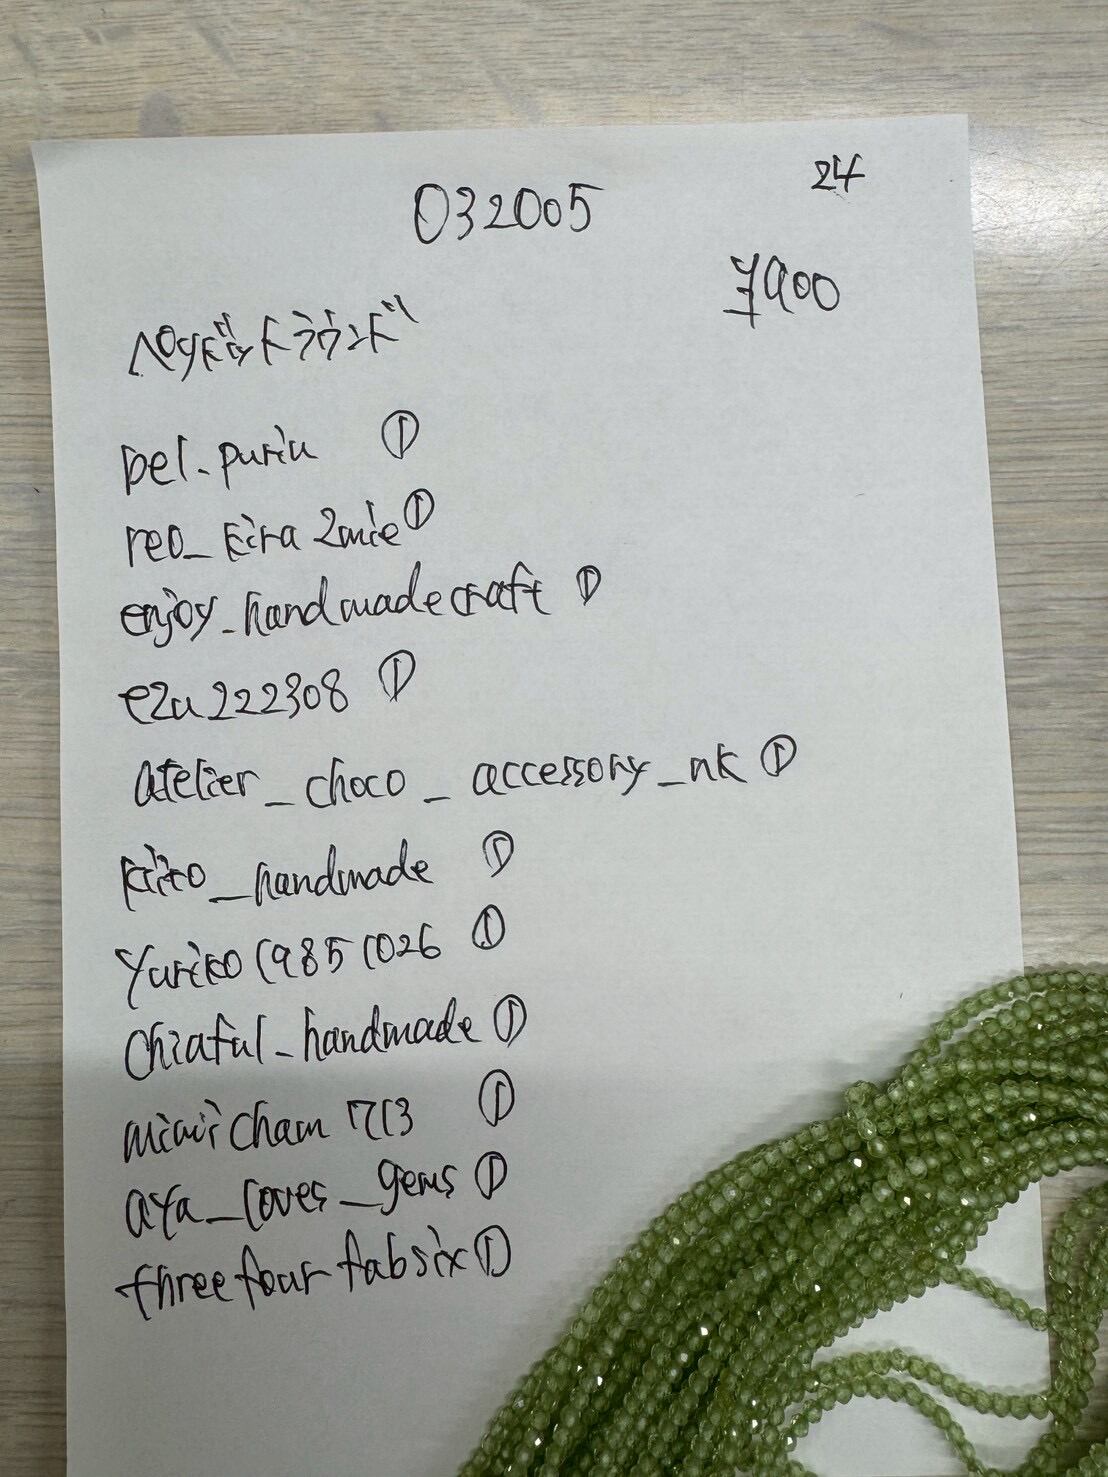 032005
24
¥900
ペリドットラウンド
bel._puriu ①
reo_kira2mie ①
enjoy_handmadecraft ①
ezu222308 ①
atelier_choco_accessory_nk ①
kiito_handmade ①
yuriko19851026 ①
chiaful_handmade ①
mimicham713 ①
aya_loves_gems ①
threefourfabsix ①